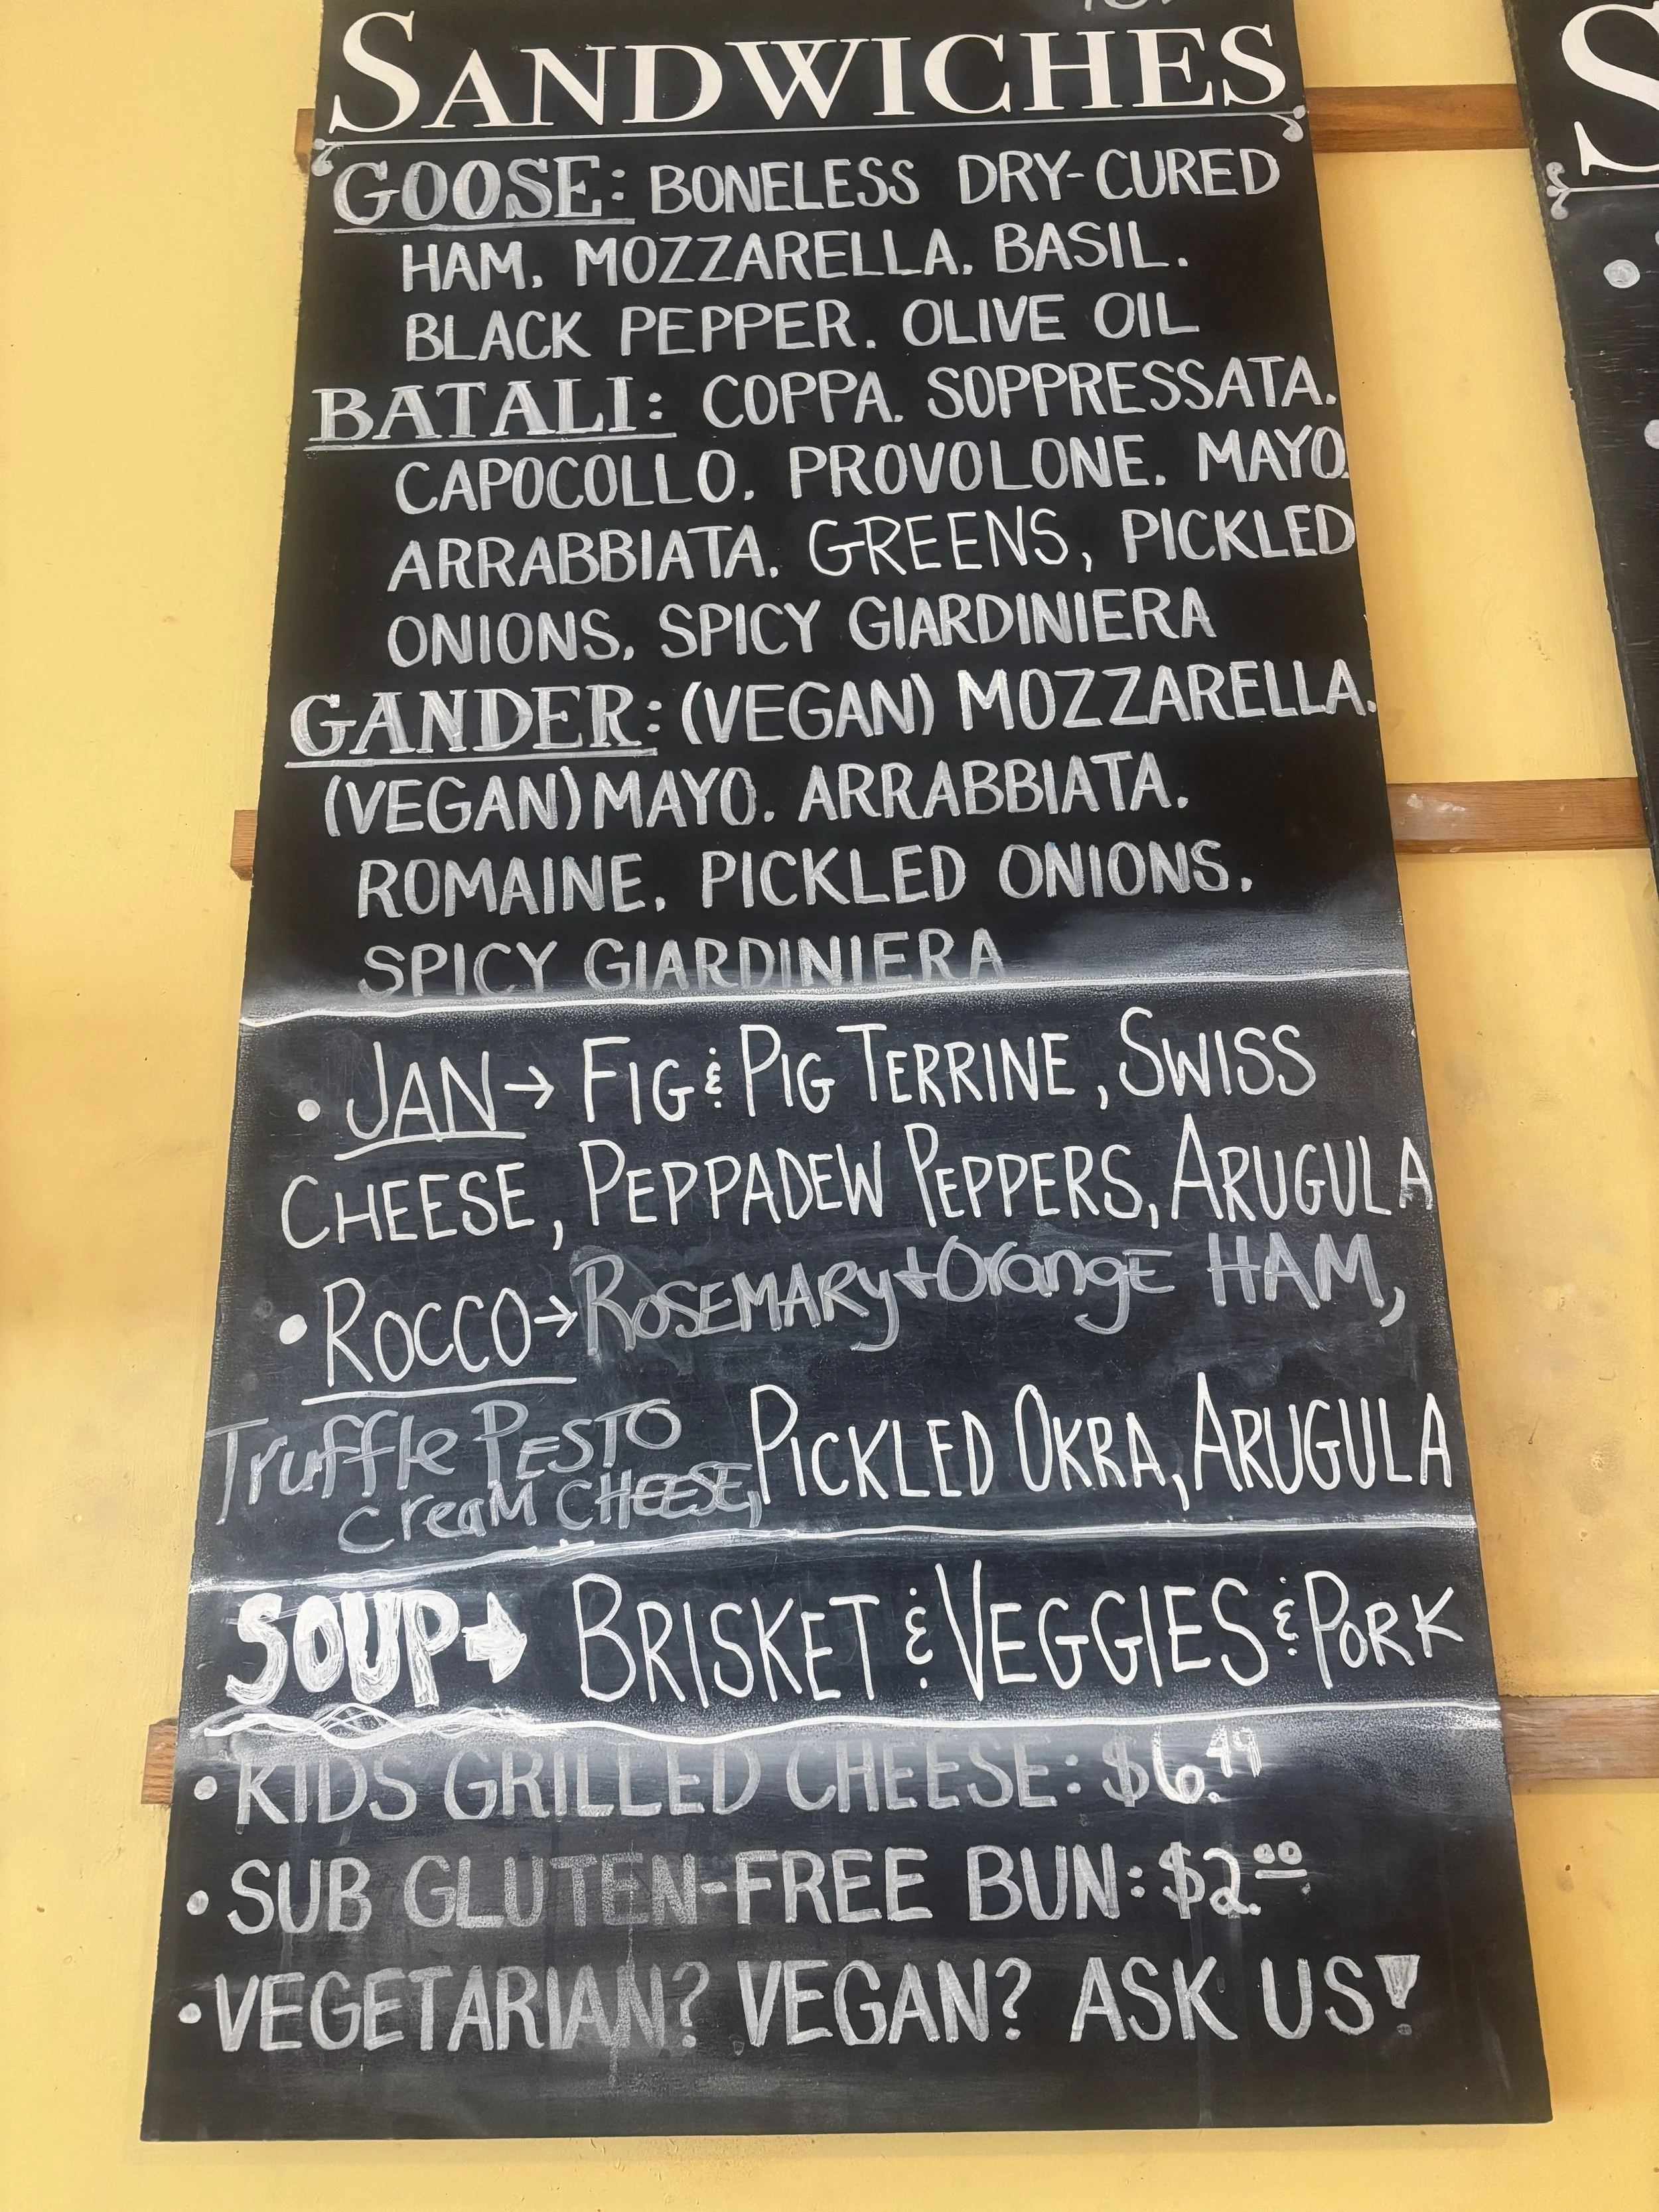 SANDWICHES
GOOSE: BONELESS DRY-CURED
HAM, MOZZARELLA, BASIL,
BLACK PEPPER, OLIVE OIL
BATALI: COPPA, SOPPRESSATA,
CAPOCOLLO, PROVOLONE, MAYO,
ARRABBIATA, GREENS, PICKLED
ONIONS, SPICY GIARDINIERA
GANDER: (VEGAN) MOZZARELLA,
(VEGAN) MAYO, ARRABBIATA,
ROMAINE, PICKLED ONIONS,
SPICY GIARDINIERA
• JAN → FIG & PIG TERRINE, SWISS
CHEESE, PEPPADEW PEPPERS, ARUGULA
• ROCCO → ROSEMARY + OrangE HAM,
Truffle PESTO
creaM CHEESE, PICKLED OKRA, ARUGULA
SOUP → BRISKET & VEGGIES & PORK
• KIDS GRILLED CHEESE: $6.49
• SUB GLUTEN-FREE BUN: $2.00
• VEGETARIAN? VEGAN? ASK US!